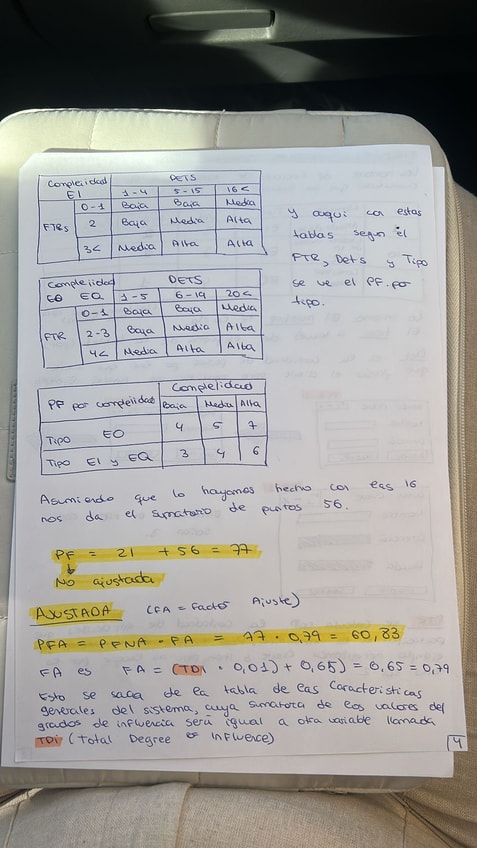 Complejidad EI DETS
1-4 5-15 16<
FTRs 0-1 Baja Baja Media
2 Baja Media Alta
3< Media Alta Alta
Y aqui con estas
tablas segun el
FTR, Dets y Tipo
se ve el PF. por
tipo.
Complejidad EO EQ DETS
1-5 6-19 20<
FTR 0-1 Baja Baja Media
2-3 Baja Media Alta
4< Media Alta Alta
PF por complejidad Complejidad
Baja Media Alta
Tipo EO 4 5 7
Tipo EI y EQ 3 4 6
Asumiendo que lo hayamos hecho con esos 16
nos da el sumatorio de puntos 56.
PF = 21 + 56 = 77
↓
NO ajustada
AJUSTADA (FA = Factor Ajuste)
PFA = PFNA · FA = 77 · 0,79 = 60,83
FA es FA = (TDi · 0,01) + 0,65) = 0,65 = 0,79
Esto se saca de la tabla de las Características
generales del sistema, cuya sumatoria de los valores del
grados de influencia será igual a otra variable llamada
TDi (Total Degree of Influence)
4